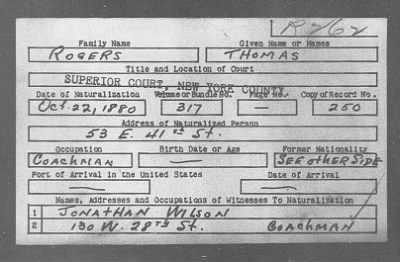 R262
Family Name Given Name or Names
ROGERS THOMAS
Title and Location of Court
SUPERIOR COURT, NEW YORK COUNTY
Date of Naturalization Volume or Bundle No. Page No. Copy of Record No.
Oct. 22, 1880 317 — 250
Address of Naturalized Person
53 E. 41st St.
Occupation Birth Date or Age Former Nationality
COACHMAN — SEE OTHER SIDE
Port of Arrival in the United States Date of Arrival
— —
Names, Addresses and Occupations of Witnesses To Naturalization
1 JONATHAN WILSON
2 130 W. 28th St. COACHMAN